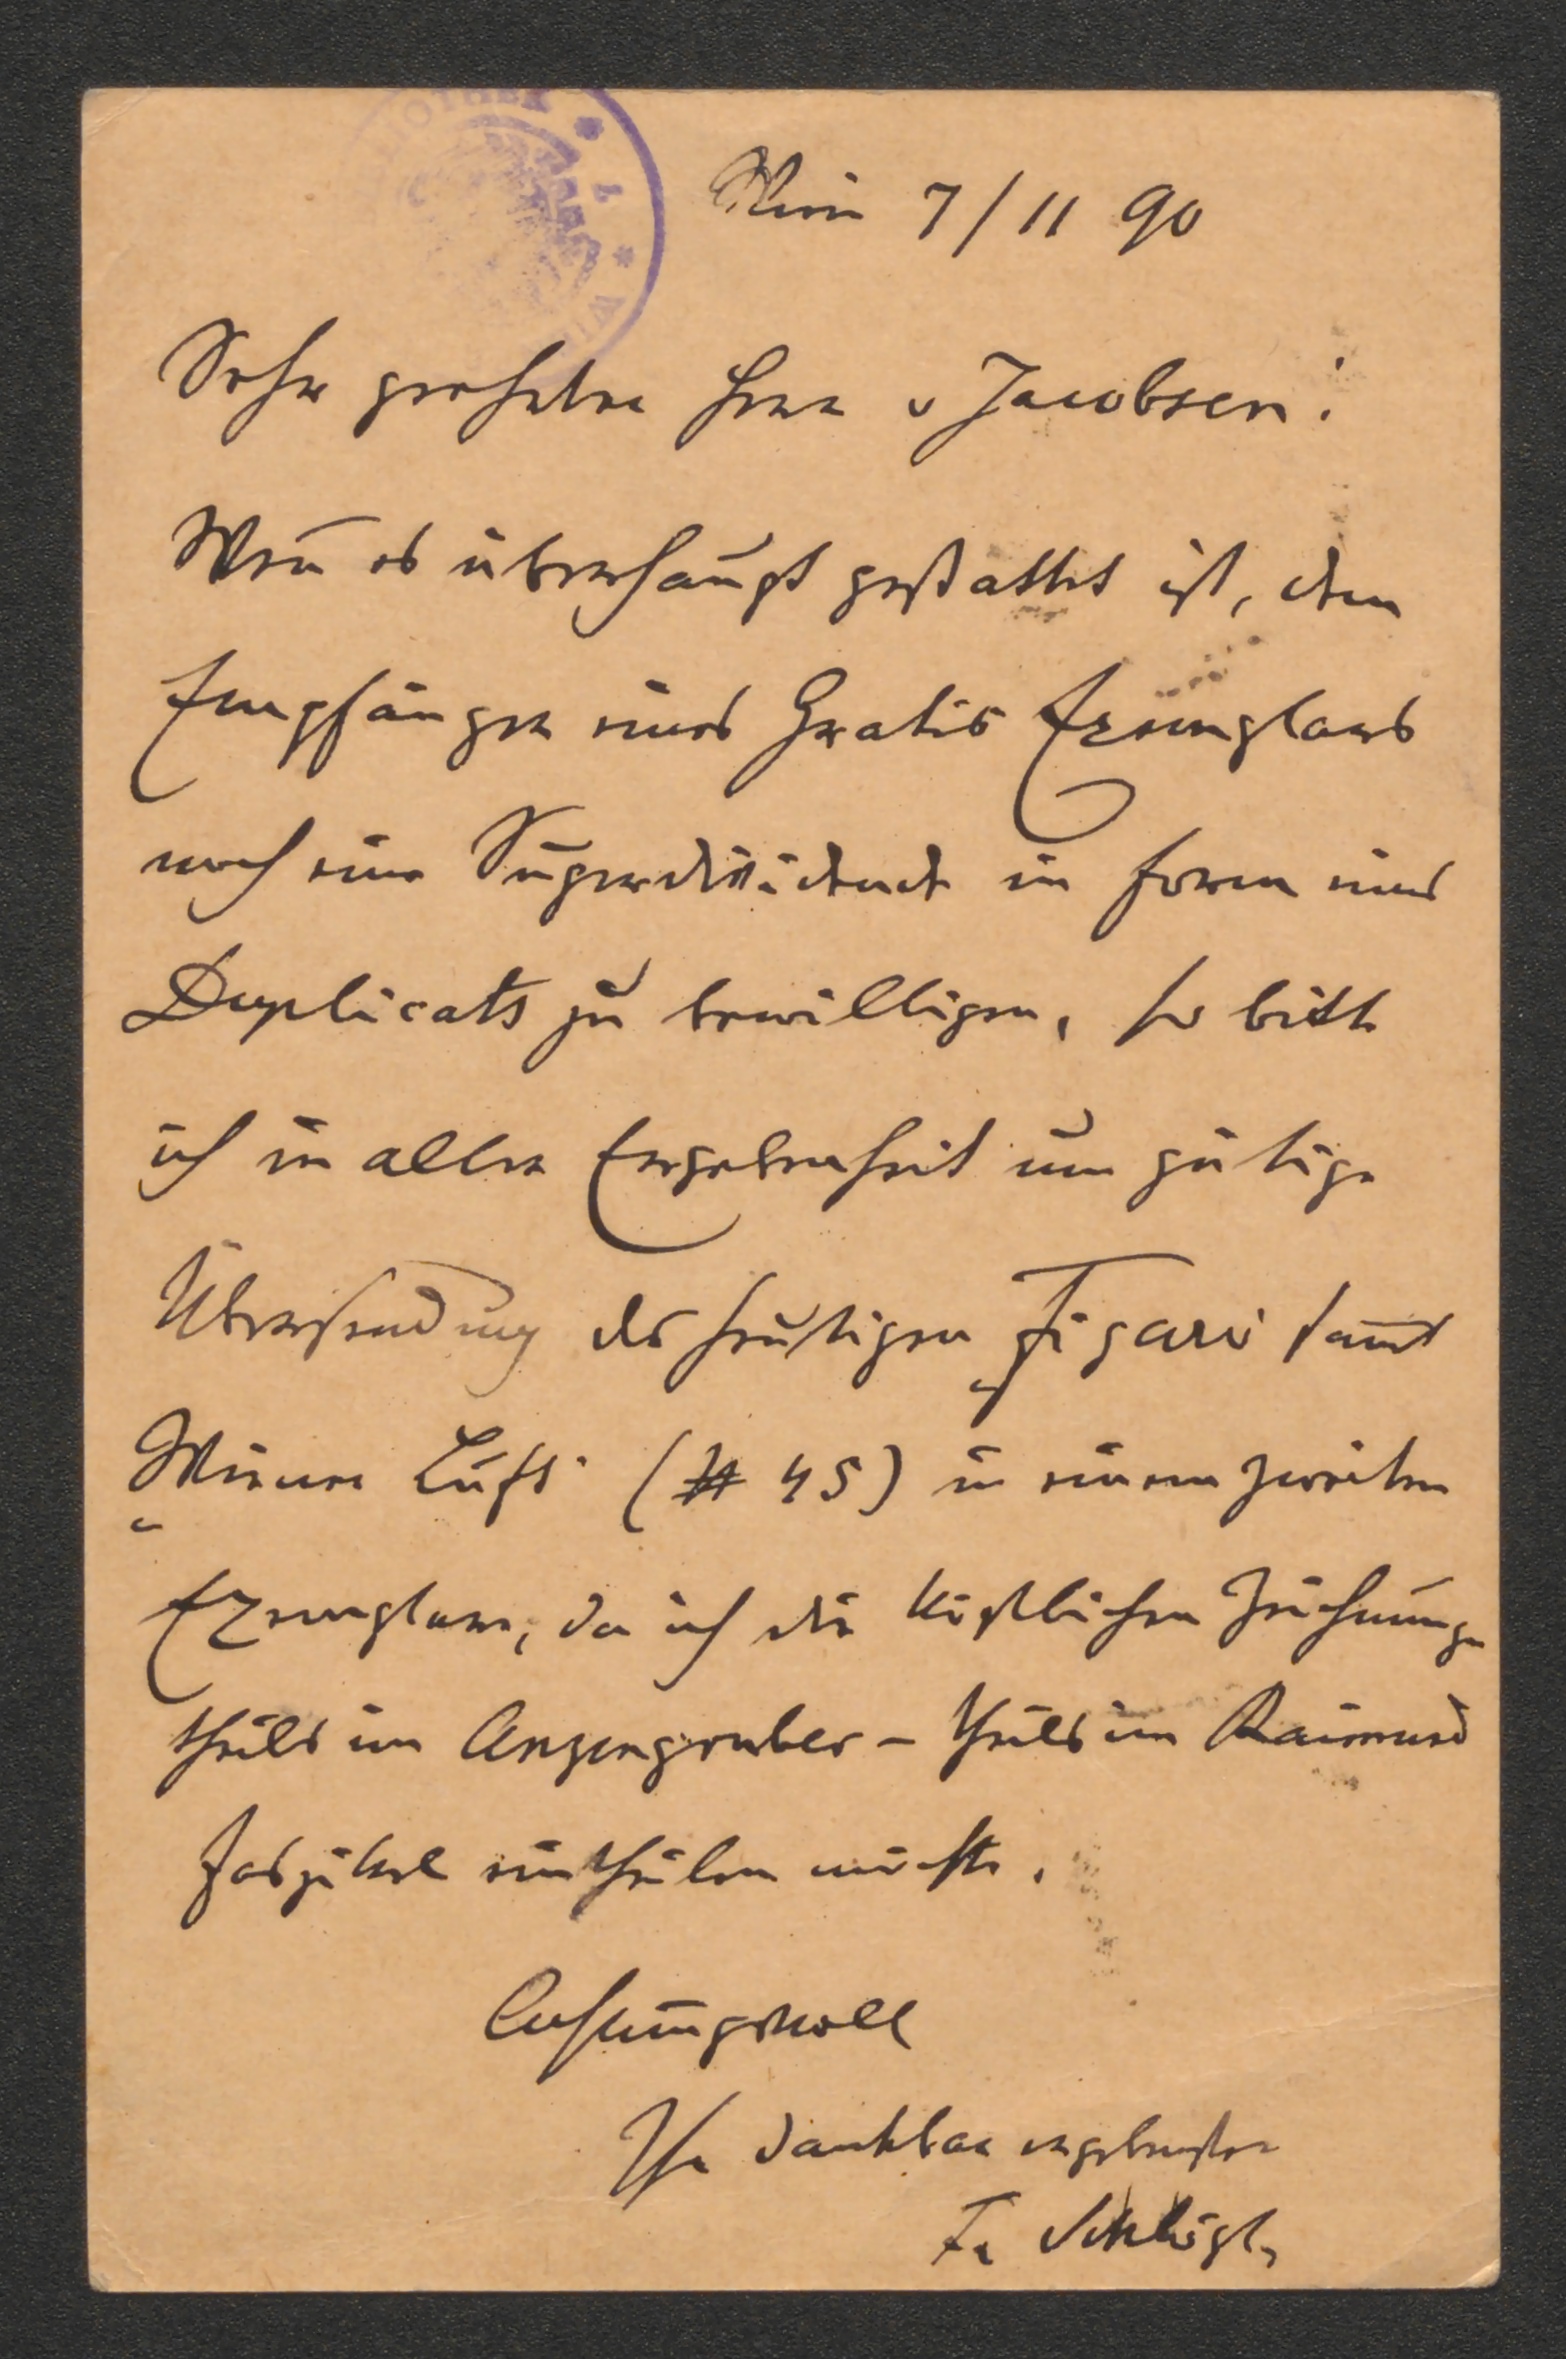 Wien 7/11 90
Sehr geehrter Herr v Jacobsen!
Weñ es überhaupt gestattet ist, dem
Empfänger eines Gratis Exemplars
noch eine Superdividende in Form eines
Duplicats zu bewilligen, so bitte
ich in aller Ergebenheit um gütige
Übersendung des heutigen „Figaro“ samt
„Wiener Luft“ (№ 45) in einem zweiten
Exemplar, da ich die köstlichen Zeichnungen
theils im Anzengruber – theils im Raimund
Faszikel eintheilen möchte.
Achtungsvoll
Ihr dankbar ergebenster
Fr Schlögl